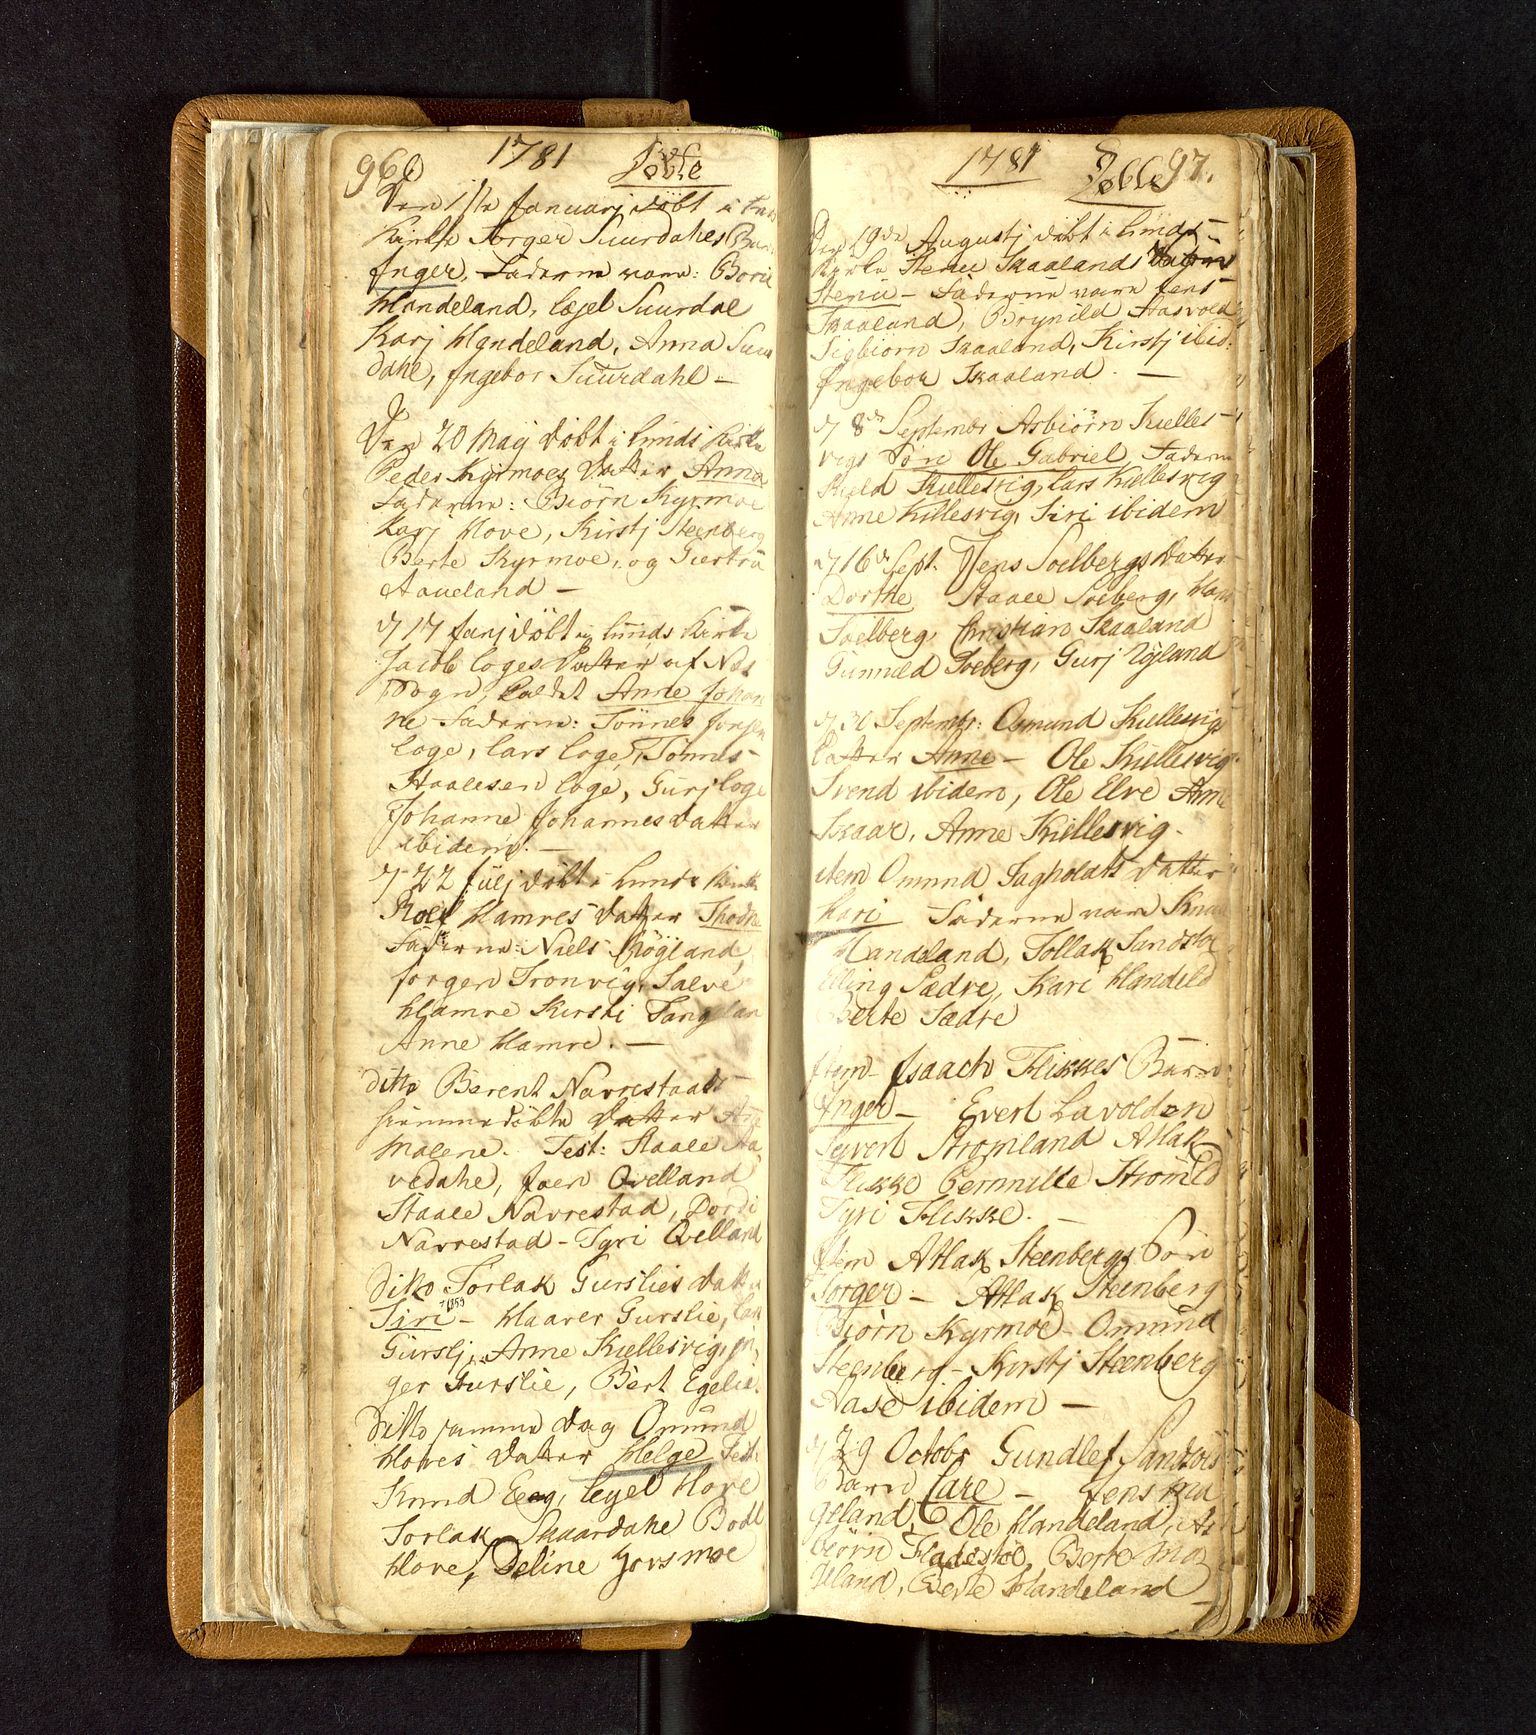 960 1781 Döbte
Den 1ste Januarj döbt i
Kirke Torger Suurdahes
Inger, Fadderne vare: Boril
Handeland, Eegel Suurdal
Karj Handeland, Anna
dahl, Ingebor Suurdahl –
Den 20 Maij döbt i Lunds Kirke
Peder Kyrmoes Datter Anna
Fadderne: Biörn Kyrmoe
Karj Hove, Kirstj Steenberg
Berte Kyrmoe, og Giertru
Aaueland –
17 Junj döbt i Lunds Kirke
Jacob Loges Datter af
Sogn, kaldet Anne Johan
ne Fadderne: Tönnes
Loge, Lars Loge, Tönnes
Staalesen Loge, Gurj Loge
Johanne Johannesdatter
ibidem. –
22 Julj döbt i Lunds Kirke
Roel Hamres Datter
Fadderne: Niels
Jörgen Tronvig, Salve
Hamre Kirsti
Anne Hamre. –
ditto Berent Navrestads
hiemmedöbte Datter
Malene. Test: Staale
vedahe, Joen Qvelland
Staale Navrestad, Dordi
Navrestad – Tyri Qvelland
Ditto Torlak Gurslies Datter
Siri – Haaver Gurslie,
Gurslj, Anne Kiellesvig,
ger Gurslie, Bert Egelie.
Ditto samme dag Omund
Hoves Datter Helge Test:
Knud Eeg, Eegel Hove
Torlak Skaardahe Bodl
Hove, Deline
1781 Döbte 97.
Den 19de Augustj döbt i Lunds
Kirke Stenie Skaalands Datter
Stenie – Fadderne vare Jens
Skaaland, Brynild Aasvold
Sigbiörn Skaaland, Kirstj ibid:
Ingebor Skaaland. –
8de September Asbiörn Kielles
vigs Sön Ole Gabriel, Fadderne
Kield Kiellesvig, Lars Kiellesvig
Anne Killesvig, Siri ibidem
16de Sept. Jens Soelbergs Datter
Dorthe Staale Soeberg, Hans
Soelberg, Christian Skaaland
Gunnild Soeberg, Gurj Röjland
30 Septembr: Omund Kiellesvigs
Datter Anne – Ole Kiellesvig
Svend ibidem, Ole Elve Anne
Skaar, Anne Kiellesvig.
item Omund Tagholdts Datter
Kari Fadderne vare Knud
Handeland, Tollak
Elling Sædre, Kari Handeld
Berte Sædre
Item Isaach Flikkes Barn
Inger – Evert Lavolden
Syvert Stromland Atlak
Flikke Pernille Stromld
Tyri Flikke. –
Item Atlak Steenbergs Sön
Torger – Atlak Steenberg
Biörn Kyrmoe – Omund
Steenberg – Kirstj Steenberg
Aase ibidem –
29 Octobr Gundlef
Barn – Jens Mu
geland, Ole Handeland,
biörn Fladstöe, Berte Mo
geland, Berte Handeland